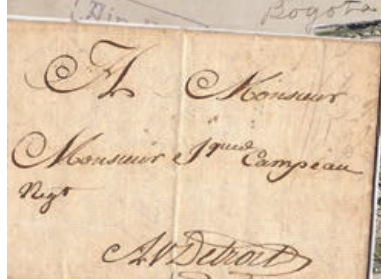 Bogota
A Monsieur
Monsieur Jques Campeau
Negt
Au Detroit